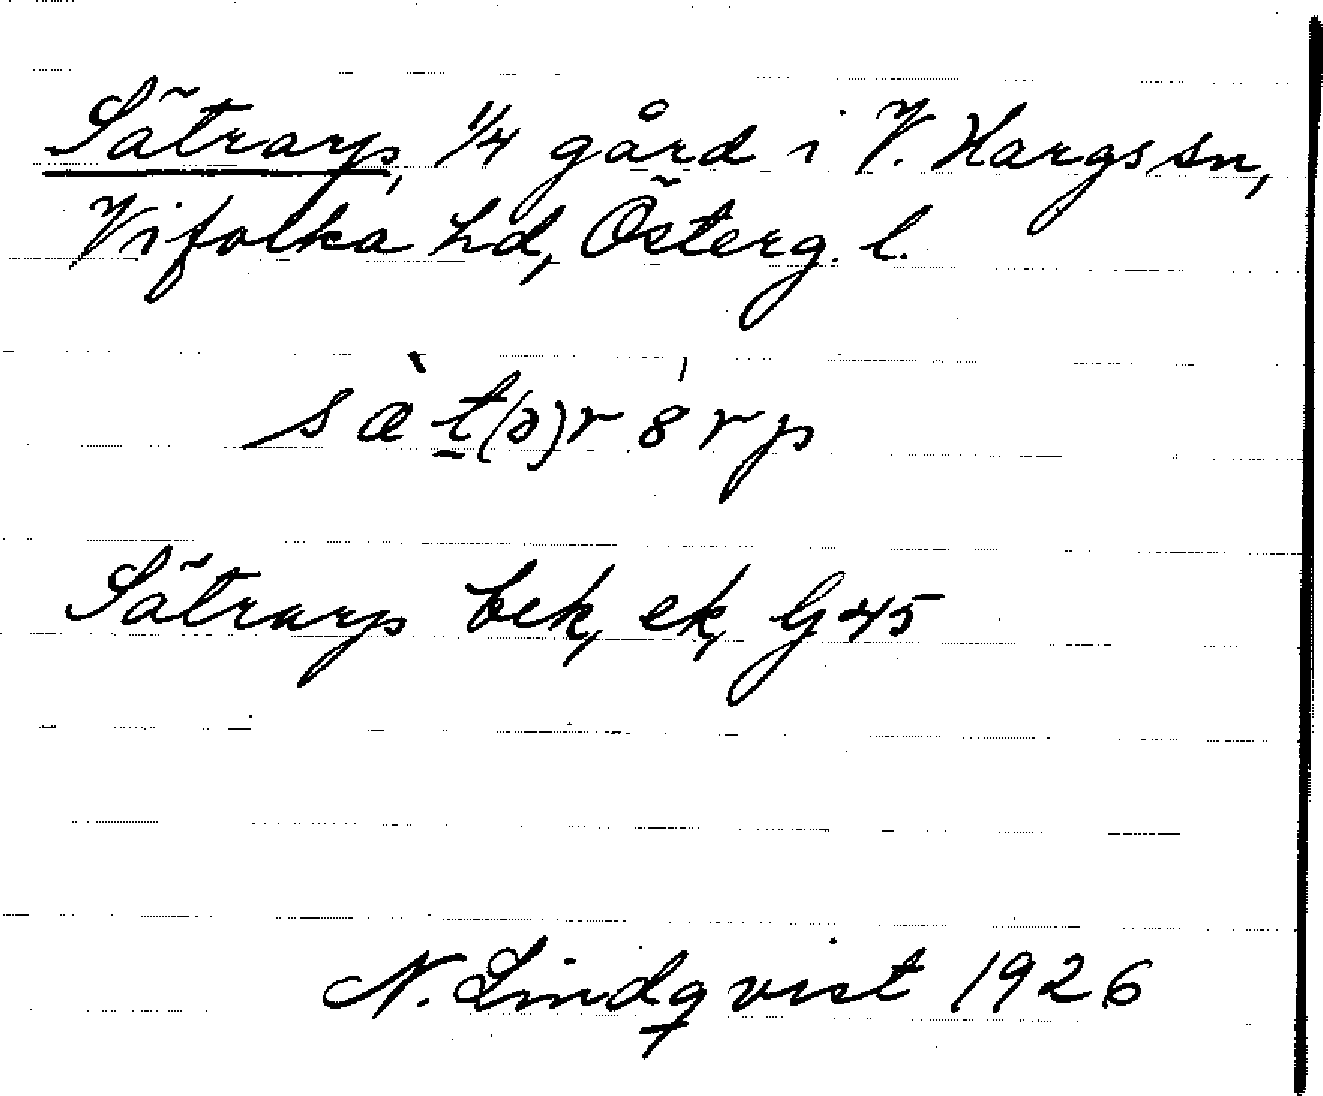 Sätrarp, 1/4 gård i V. Hargs sn,
Vifolka hd, Österg. l.
sæ̀t̠(ə)r8̍rp
Sätrarp bek, ek, Gj 45
N. Lindqvist 1926